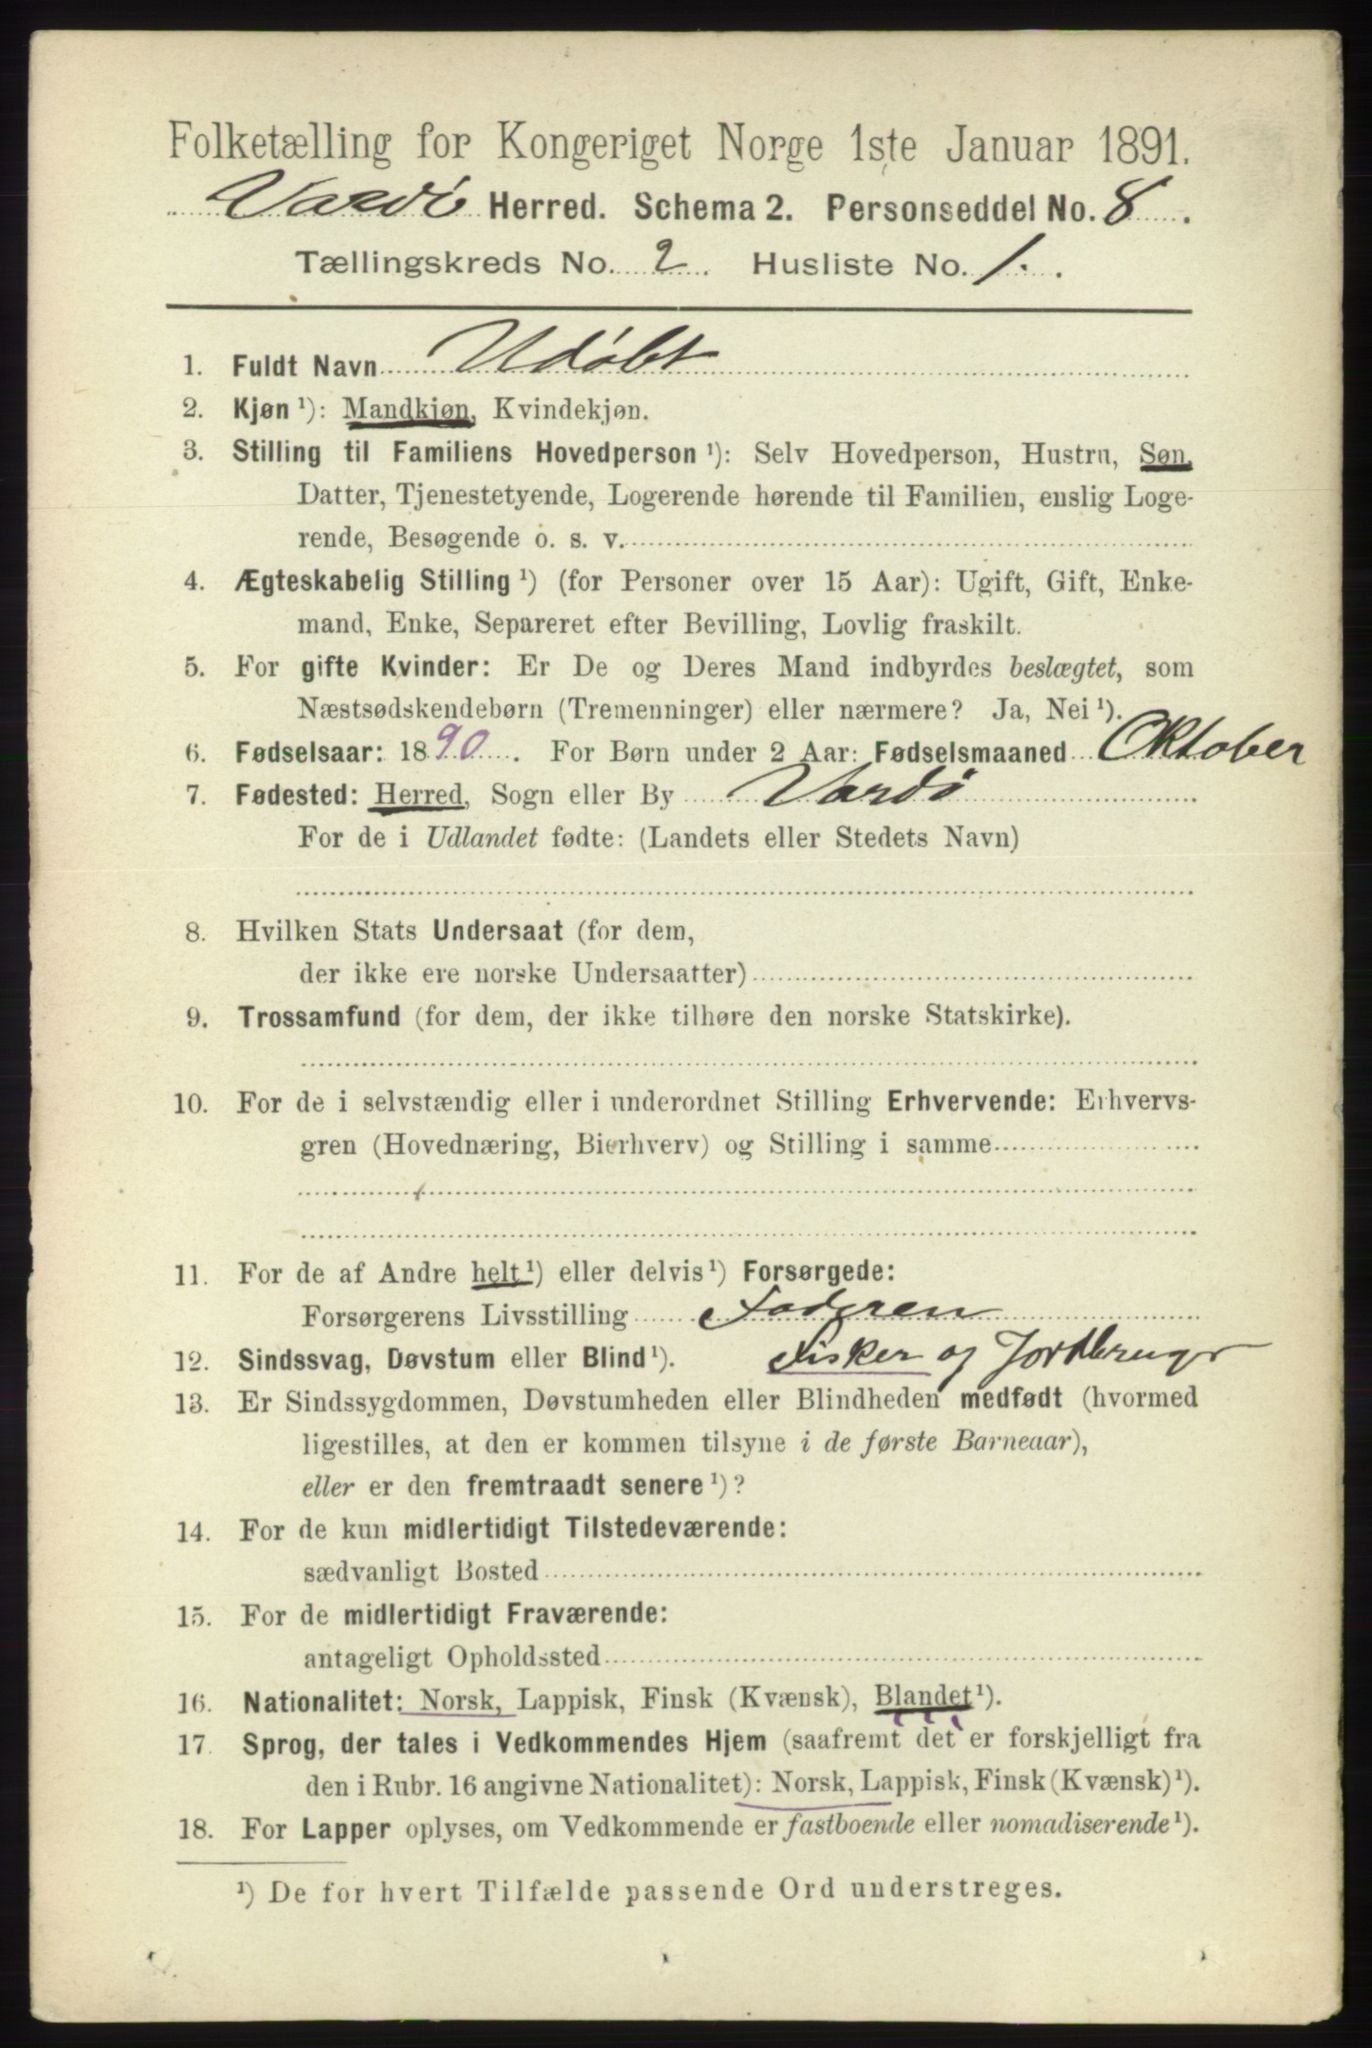 Folketælling for Kongeriget Norge 1ste Januar 1891.
Vardö Herred. Schema 2. Personseddel No. 8.
Tællingskreds No. 2 Husliste No. 1.
1. Fuldt Navn Udøbt
2. Kjøn ¹): Mandkjøn, Kvindekjøn.
3. Stilling til Familiens Hovedperson ¹): Selv Hovedperson, Hustru, Søn,
Datter, Tjenestetyende, Logerende hørende til Familien, enslig Loge-
rende, Besøgende o. s. v.
4. Ægteskabelig Stilling ¹) (for Personer over 15 Aar): Ugift, Gift, Enke-
mand, Enke, Separeret efter Bevilling, Lovlig fraskilt.
5. For gifte Kvinder: Er De og Deres Mand indbyrdes beslægtet, som
Næstsødskendebørn (Tremenninger) eller nærmere? Ja, Nei ¹).
6. Fødselsaar: 1890. For Børn under 2 Aar: Fødselsmaaned Oktober
7. Fødested: Herred, Sogn eller By Vardö
For de i Udlandet fødte: (Landets eller Stedets Navn)
8. Hvilken Stats Undersaat (for dem,
der ikke ere norske Undersaatter)
9. Trossamfund (for dem, der ikke tilhøre den norske Statskirke).
10. For de i selvstændig eller i underordnet Stilling Erhvervende: Erhvervs-
gren (Hovednæring, Bierhverv) og Stilling i samme
11. For de af Andre helt ¹) eller delvis ¹) Forsørgede:
Forsørgerens Livsstilling Faderen
12. Sindssvag, Døvstum eller Blind ¹). Fisker og Jordbruger
13. Er Sindssygdommen, Døvstumheden eller Blindheden medfødt (hvormed
ligestilles, at den er kommen tilsyne i de første Barneaar),
eller er den fremtraadt senere ¹)?
14. For de kun midlertidigt Tilstedeværende:
sædvanligt Bosted
15. For de midlertidigt Fraværende:
antageligt Opholdssted
16. Nationalitet: Norsk, Lappisk, Finsk (Kvænsk), Blandet ¹).
17. Sprog, der tales i Vedkommendes Hjem (saafremt det er forskjelligt fra
den i Rubr. 16 angivne Nationalitet): Norsk, Lappisk, Finsk (Kvænsk) ¹).
18. For Lapper oplyses, om Vedkommende er fastboende eller nomadiserende ¹).
¹) De for hvert Tilfælde passende Ord understreges.